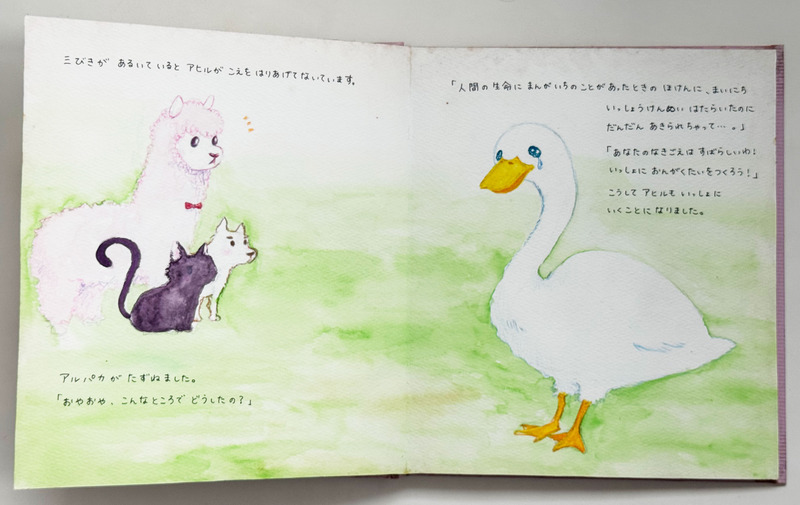 三びきが あるいていると アヒルが こえをはりあげてないています。
アルパカが たずねました。
「おやおや、こんなところで どうしたの？」
「人間の生命に まんがいちのことが あったときの ほけんに、まいにち
いっしょうけんめい はたらいたのに
だんだん あきられちゃって…。」
「あなたのなきごえは すばらしいわ！
いっしょに おんがくたいをつくろう！」
こうして アヒルも いっしょに
いくことに なりました。